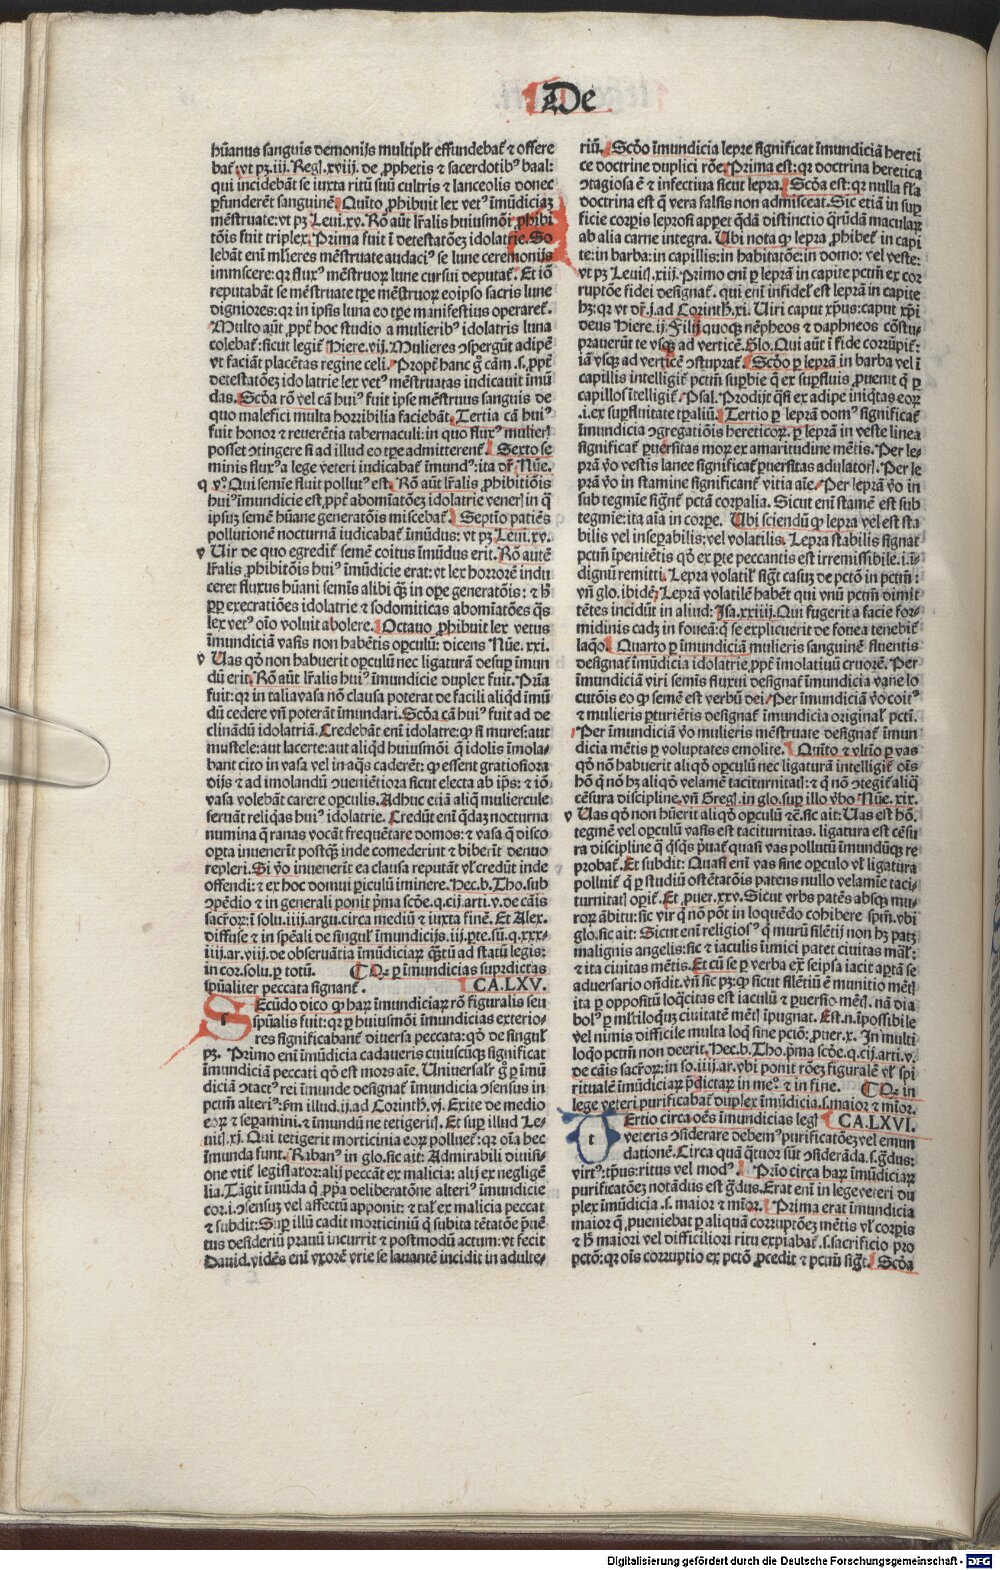 De
hūanus sanguis demonijs multiplr̄ effundebat̄ ⁊ offere
bat̄: vt pꝫ .iii. Regl̄. xviii. de ꝓphetis ⁊ sacerdotibꝰ baal:
qui incidebāt se iuxta ritū suū cultris ⁊ lanceolis donec
ꝑfunderēt sanguinē. Quīto ꝓhibuit lex vetꝰ īmūdiciaꝫ
mēstruate: vt pꝫ Leui. xv. Rō aūt lr̄alis huiusmōi ꝓhibi
tōis fuit triplex. Prima fuit ī detestatōeꝫ idolatrie. So
lebāt eni mlīeres mēstruate audaciꝰ se lune ceremonijs
immiscere: qꝛ fluxꝰ mēstruoꝝ lune cursui deputat̄. Et iō
reputabāt se mēstruate tꝑe mēstruoꝝ eoipso sacris lune
digniores: qꝛ in ipsis luna eo tꝑe manifestius operaret̄.
Multo aūt ꝓpt̄ hoc studio a mulieribꝰ idolatris luna
colebat̄: sicut legit̄ Hiere. vij. Mulieres ↄspergūt adipē
vt faciāt placētas regine celi. Propt̄ hanc ḡ cām .s. ꝓpt̄
detestatōeꝫ idolatrie lex vetꝰ mēstruatas iudicauit īmū
das. Scd̄a rō vel cā huiꝰ fuit ipse mēstruus sanguis de
quo malefici multa horribilia faciebāt. Tertia cā huiꝰ
fuit honor ⁊ reuerētia tabernaculi: in quo fluxꝰ mulieꝝ
posset ↄtingere si ad illud eo tꝑe admitterent̄. Sexto se
minis fluxꝰ a lege veteri iudicabat̄ īmundꝰ: ita dr̄. Nūe.
q v. Qui semīe fluit pollutꝰ est. Rō aūt lr̄alis ꝓhibitiōis
huiꝰ īmundicie est ꝓpt̄ abomīatōeꝫ idolatrie veneꝝ in q̄
ipsuꝫ semē hūane generatōis miscebat̄. Septīo patiēs
pollutionē nocturnā iudicabat̄ īmūdus: vt pꝫ Leui. xv.
v Uir de quo egredit̄ semē coitus īmūdus erit. Rō autē
lr̄alis ꝓhibitōis huiꝰ īmūdicie erat: vt lex horrorē indu
ceret fluxus hūani semīs alibi q̄ꝫ in oꝑe generatōis: ⁊ h̄
ꝓp̄ execratiōes idolatrie ⁊ sodomiticas abomīatōes q̄s
lex vetꝰ oīo voluit abolere. Octauo ꝓhibuit lex vetus
īmundiciā vasis non habētis oꝑculū: dicens Nūe. xxi.
v Uas qd̄ non habuerit oꝑculū nec ligaturā desuꝑ īmun
dū erit. Rō aūt lr̄alis huiꝰ īmundicie duplex fuit. Prīa
fuit: qꝛ in talia vasa nō clausa poterat de facili aliqd̄ īmū
dū cedere vn̄ poterāt īmundari. Scd̄a cā huiꝰ fuit ad de
clinādū idolatriā. Credebāt eni idolatre: ꝙ si mures: aut
mustele: aut lacerte: aut aliqd̄ huiusmōi q̄ idolis īmola-
bant cito in vasa vel in aq̄s caderēt: ꝙ essent gratiosiora
dijs ⁊ ad imolandū ↄueniētiora sicut electa ab ip̄s: ⁊ iō
vasa volebāt carere oꝑculis. Adhuc etiā aliq̄ muliercule
seruāt reliq̄as huiꝰ idolatrie. Credūt eni q̄daꝫ nocturna
numina q̄ ranas vocāt frequētare domos: ⁊ vasa q̄ disco
oꝑta inuenerīt postq̄ꝫ inde comederint ⁊ biberit denuo
repleri. Si v̄o inuenerīt ea clausa reputāt vl̄ credūt inde
offendi: ⁊ ex hoc domui ꝑiculū iminere. Hec .b. Tho. sub
ↄpēdio ⁊ in generali ponit p̄ma scd̄e. q. cij. arti. v. de cāis
sacr̄oꝝ: ī solu. iiij. argu. circa mediū ⁊ iuxta finē. Et Alex.
diffuse ⁊ in spēali de singul̄ īmundicijs. iij. ꝑte. sū. q. xxx-
iiij. ar. viii. de obseruātia īmūdiciaꝝ q̄ꝫtū ad statū legis:
in coꝛ. solu. ꝑ totū. ¶ Qꝛ ꝑ īmundicias supꝛdictas
sp̄ualiter peccata signant̄. CA. LXV.
SEcūdo dico ꝙ haꝝ īmundiciaꝝ rō figuralis seu
sp̄ualis fuit: qꝛ ꝑ huiusmōi īmundicias exterio-
res significabant̄ diuersa peccata: qd̄ de singul̄
pꝫ. Primo eni īmūdicia cadaueris cuiuscūqꝫ significat
īmundiciā peccati qd̄ est mors aīe. Uniuersalr̄ ḡ ꝑ īmū
diciā ↄtactꝰ rei īmunde designat̄ īmundicia ↄsensus in
pctm̄ alteriꝰ: ẜm illud .ij. ad Corinth. vj. Exite de medio
eoꝝ ⁊ seꝑamini. ⁊ īmundū ne tetigerīꝭ. Et suꝑ illud Le-
uiꝭ. xj. Qui tetigerit morticinia eoꝝ polluet̄: qꝛ oīa hec
īmunda sunt. Rabanꝰ in glo. sic ait: Admirabili diuisi-
one vtit̄ legislator: alij peccāt ex malicia: alij ex negligē
lia. Tāgit īmūda q̄ ꝓp̄a deliberatōne alteriꝰ īmundicie
coꝛ. i. ↄsensuꝫ vel affectū apponit: ⁊ tal̄ ex malicia peccat
⁊ subdit: Suꝑ illū cadit morticiniū q̄ subita tētatōe p̄uē
tus desideriū prauū incurrit ⁊ postmodū actum: vt fecit
Dauid. vidēs eni vxorē vrie se lauantē incidit in adulte-
riū. Scd̄o īmundicia lepre significat īmundiciā hereti
ce doctrine duplici rōe. Prima est: qꝛ doctrina heretica
ↄtagiosa ē ⁊ infectiua sicut lepra. Scd̄a est: qꝛ nulla fl̄a
doctrina est q̄ vera falsis non admisceat. Sic etiā in suꝑ
ficie corꝑis leprosi appet q̄dā distinctio q̄rūdā maculaꝝ
ab alia carne integra. Ubi nota ꝙ lepra ꝓhibet̄ in capi
te: in barba: in capillis: in habitatōe: in domo: vel veste:
vt pꝫ Leuiꝭ. xiii. Primo eni ꝑ leprā in capite pctm̄ ex cor
ruptōe fidei designat̄. qui eni infidel̄ est leprā in capite
hꝫ: qꝛ vt dr̄ .j. ad Corinth. xi. Uiri caput xp̄us: caput xp̄i
deus Hiere. ij. Filij quoqꝫ nēpheos ⁊ daphneos cōstu-
prauerūt te vsqꝫ ad verticē. Glo. Qui aūt ī fide corrūpit̄:
iā vsqꝫ ad verticē ↄstuprat̄. Scd̄o ꝑ leprā in barba vel ī
capillis intelligit̄ pctm̄ suꝑbie q̄ ex suꝑfluis ꝓuenit q̄ ꝑ
capillos ītelligit̄. Psal. Prodijt q̄si ex adipe iniq̄tas eoꝝ
.i. ex suꝑfluitate tꝑaliū. Tertio ꝑ leprā domꝰ significat̄
īmundicia ↄgregatiōis hereticoꝝ. ꝑ leprā in veste linea
significat̄ ꝑuersitas moꝝ ex amaritudine mētis. Per le-
prā v̄o vestis lanee significat̄ ꝑuersitas adulatoꝝ. Per le
prā v̄o in stamine significant̄ vitia aīe. Per leprā v̄o in
sub tegmīe signēt pctā corꝑalia. Sicut eni stamē est sub
tegmīe: ita aīa in corꝑe. Ubi sciendū ꝙ lepra vel est sta
bilis vel inseꝑabilis: vel volatilis. Lepra stabilis signat
pctm̄ īpenitētis qd̄ ex ꝑte peccantis est irremissibile .i. ī-
dignū remitti. Lepra volatil̄ sigt̄ casuꝫ de pctō in pctm̄:
vn̄ glo. ibidē. Leprā volatilē habēt qui vnū pctm̄ dimit
tētes incidūt in aliud: Isa. xxiiij. Qui fugerit a facie foꝛ-
midinis cadꝫ in foueā: q̄ se explicuerit de fouea tenebit̄
laq̄o. Quarto ꝑ īmundiciā mulieris sanguinē fluentis
designat̄ īmūdicia idolatrie ꝓpt̄ īmolatiuū cruorē. Per
īmundiciā viri semīs fluxui designat̄ īmundicia vane lo
cutōis eo ꝙ semē est verbū dei. Per īmundiciā v̄o coitꝰ
⁊ mulieris ꝑturiētis designat̄ īmundicia original̄ pcti.
Per īmundiciā v̄o mulieris mēstruate designat̄ īmun
dicia mētis ꝑ voluptates emolite. Quīto ⁊ vltīo ꝑ vas
qd̄ nō habuerit aliqd̄ oꝑculū nec ligaturā intelligit̄ oīs
hō q̄ nō hꝫ aliqd̄ velamē taciturnitaꝭ: ⁊ q̄ nō ↄtegit̄ aliq̄
cēsura discipline. vn̄ Gregꝭ. in glo. suꝑ illo v̄bo Nūe. xix.
v Uas qd̄ non hūerit aliqd̄ oꝑculū ⁊c̄. sic ait: Uas est hō.
tegmē vel oꝑculū vasis est taciturnitas. ligatura est cēsu
ra discipline q̄ q̄sq̄s p̄uat̄ quasi vas pollutū īmundūqꝫ re
probat̄. Et subdit: Quasi eni vas sine oꝑculo vl̄ ligatura
polluit̄ q̄ ꝑ studiū ostētatōis patens nullo velamīe taci-
turnitaꝭ oꝑit̄. Et ꝓuer. xxv. Sicut vrbs patēs absqꝫ mu-
roꝝ ābitu: sic vir q̄ nō pōt in loquēdo cohibere spm̄. vbi
glo. sic ait: Sicut eni religiosꝰ q̄ murū silētii non hꝫ patꝫ
malignis angelis: sic ⁊ iaculis īimici patet ciuitas mal̄:
⁊ ita ciuitas mētis. Et cū se ꝑ verba ex̄ seipsa iacit aꝑtā se
aduersario on̄dit. vn̄ sic pꝫ: ꝙ sicut silētiū ē munitio mēꝭ
ita ꝑ oppositū loq̄citas est iaculū ⁊ ꝑuersio mēꝭ. nā dia
bolꝰ ꝑ ml̄tiloquꝫ ciuitatē mēꝭ īpugnat. Est .n. īpossibile
vel nimis difficile multa loq̄ sine pctō: ꝓuer. x. In multi
loq̄o pctm̄ non deerit. Hec .b. Tho. p̄ma scd̄e. q. cij. arti. v.
de cāis sacr̄oꝝ: in so. iiij. ar. vbi ponit rōeꝫ figuralē vl̄ spi
ritualē īmūdiciaꝝ p̄dictaꝝ in meꝰ. ⁊ in fine. ¶ Qꝛ in
lege veteri purificabat̄ duplex īmūdicia .s. maior ⁊ mīor.
TErtio circa oēs īmundicias legꝭ CA. LXVI.
veteris ↄsiderare debemꝰ purificatōeꝫ vel emun
dationē. Circa quā q̄tuor sūt ↄsiderāda .s. gradus:
virtꝰ: tp̄us: ritus vel modꝰ. Prīo circa haꝝ īmūdiciaꝝ
purificatōeꝫ notādus est gradus. Erat eni in lege veteri du
plex īmūdicia .s. maior ⁊ mīor. Prima erat īmundicia
maior q̄ ꝓueniebat ꝑ aliquā corruptōeꝫ mētis vl̄ corꝑis
⁊ h̄ maiori vel difficiliori ritu expiabat̄ .s. sacrificio pro
pctō: qꝛ oīs corruptio ex pctō ꝓcedit ⁊ pctm̄ sigt̄. Scd̄a
Digitalisierung gefördert durch die Deutsche Forschungsgemeinschaft - DFG